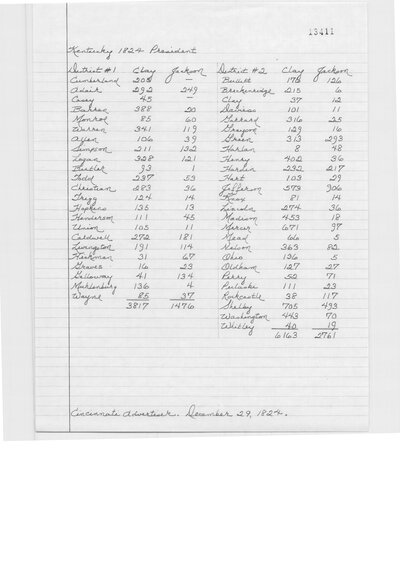 13411
Kentucky 1824 President
District #1 Clay Jackson District #2 Clay Jackson
Cumberland 205 — Bullitt 172 126
Adair 292 249 Breckenridge 215 6
Casey 45 — Clay 37 12
Barren 388 20 Daviess 101 11
Monroe 85 60 Garrard 316 25
Warren 341 119 Grayson 129 16
Allen 106 39 Green 313 293
Simpson 211 132 Harlan 8 48
Logan 328 121 Henry 402 36
Butler 93 1 Hardin 232 217
Todd 237 53 Hart 103 29
Christian 283 36 Jefferson 573 506
Trigg 124 14 Knox 81 14
Hopkins 135 13 Lincoln 274 36
Henderson 111 45 Madison 453 18
Union 105 11 Mercer 671 97
Caldwell 272 181 Mead 66 5
Livingston 191 114 Nelson 363 82
Hickman 31 67 Ohio 136 5
Graves 16 23 Oldham 127 27
Calloway 41 134 Perry 52 71
Muhlenburg 136 4 Pulaski 111 23
Wayne 85 37 Rockcastle 38 117
3817 1476 Shelby 705 493
Washington 443 70
Whitley 40 19
6163 2761
Cincinnati Advertiser. December 29, 1824.